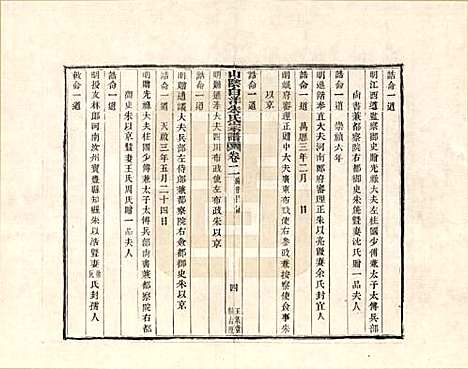 誥命一道
明江西道監察御史贈光祿大夫左柱國少傅兼太子太傅兵部
尚書兼都察院右都御史朱 暨妻沈氏贈一品夫人
誥命一道 崇禎六年
明進階奉直大夫河南 府審理正朱以亮暨妻余氏封宜人
誥命一道 萬曆三年二月 日
明岷府審理正中大夫廣東布政使司布政兼按察使食事朱
以京
誥命一道
山陰白洋朱氏宗譜 卷二
明贈通奉大夫四川布政使左布政朱以京
明贈通議大夫兵部左侍郎兼都察院右僉都御史朱以京
誥命一道 天啟三年五月二十四日
明贈光祿大夫柱國少傅兼太子太傅兵部尚書兼都察院右都
御史朱以京暨妻王氏周氏贈一品夫人
誥命一道
明授文林郎河南汝州寶豐縣知縣朱以 暨妻 氏封孺人
敕命一道
四
玉泉堂